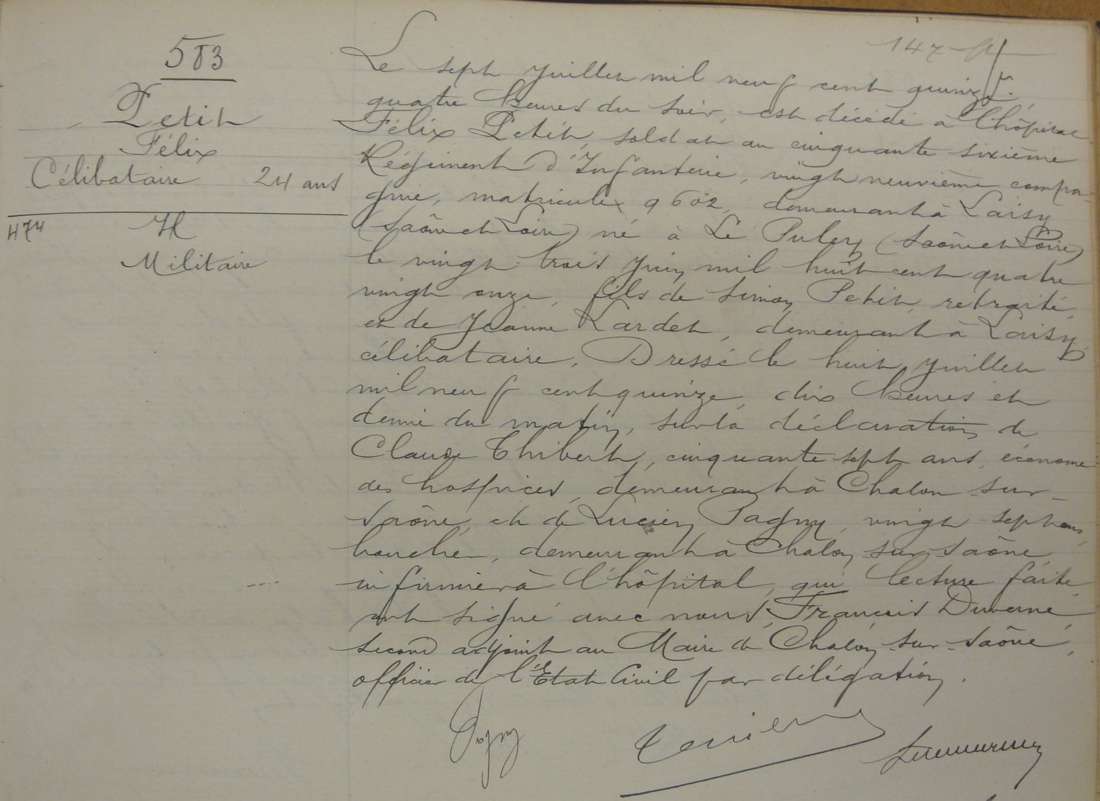 583
Petit
Félix
Célibataire 24 ans
474 H
Militaire
147
Le sept Juillet mil neuf cent quinze
quatre heures du soir, est décédé à l'hôpital
Félix Petit, soldat au cinquante sixième
Régiment d'Infanterie, vingt neuvième compa-
gnie, matricule 9602, demeurant à Laisy
(Saône et Loire) né à Le Puley (Saône et Loire)
le vingt trois Juin mil huit cent quatre
vingt onze, fils de Simon Petit, retraité,
et de Jeanne Lardet, demeurant à Laisy
célibataire. Dressé le huit Juillet
mil neuf cent quinze, dix heures et
demie du matin, sur la déclaration de
Claude Thibert, cinquante sept ans, économe
des hospices, demeurant à Chalon sur-
Saône, et de Lucien Pagny, vingt sept ans
, demeurant à Chalon sur-Saône
infirmier à l'hôpital, qui lecture faite,
ont signé avec nous, François Duverne
second adjoint au Maire de Chalon-sur-Saône,
officier de l'Etat Civil par délégation.
Pagny